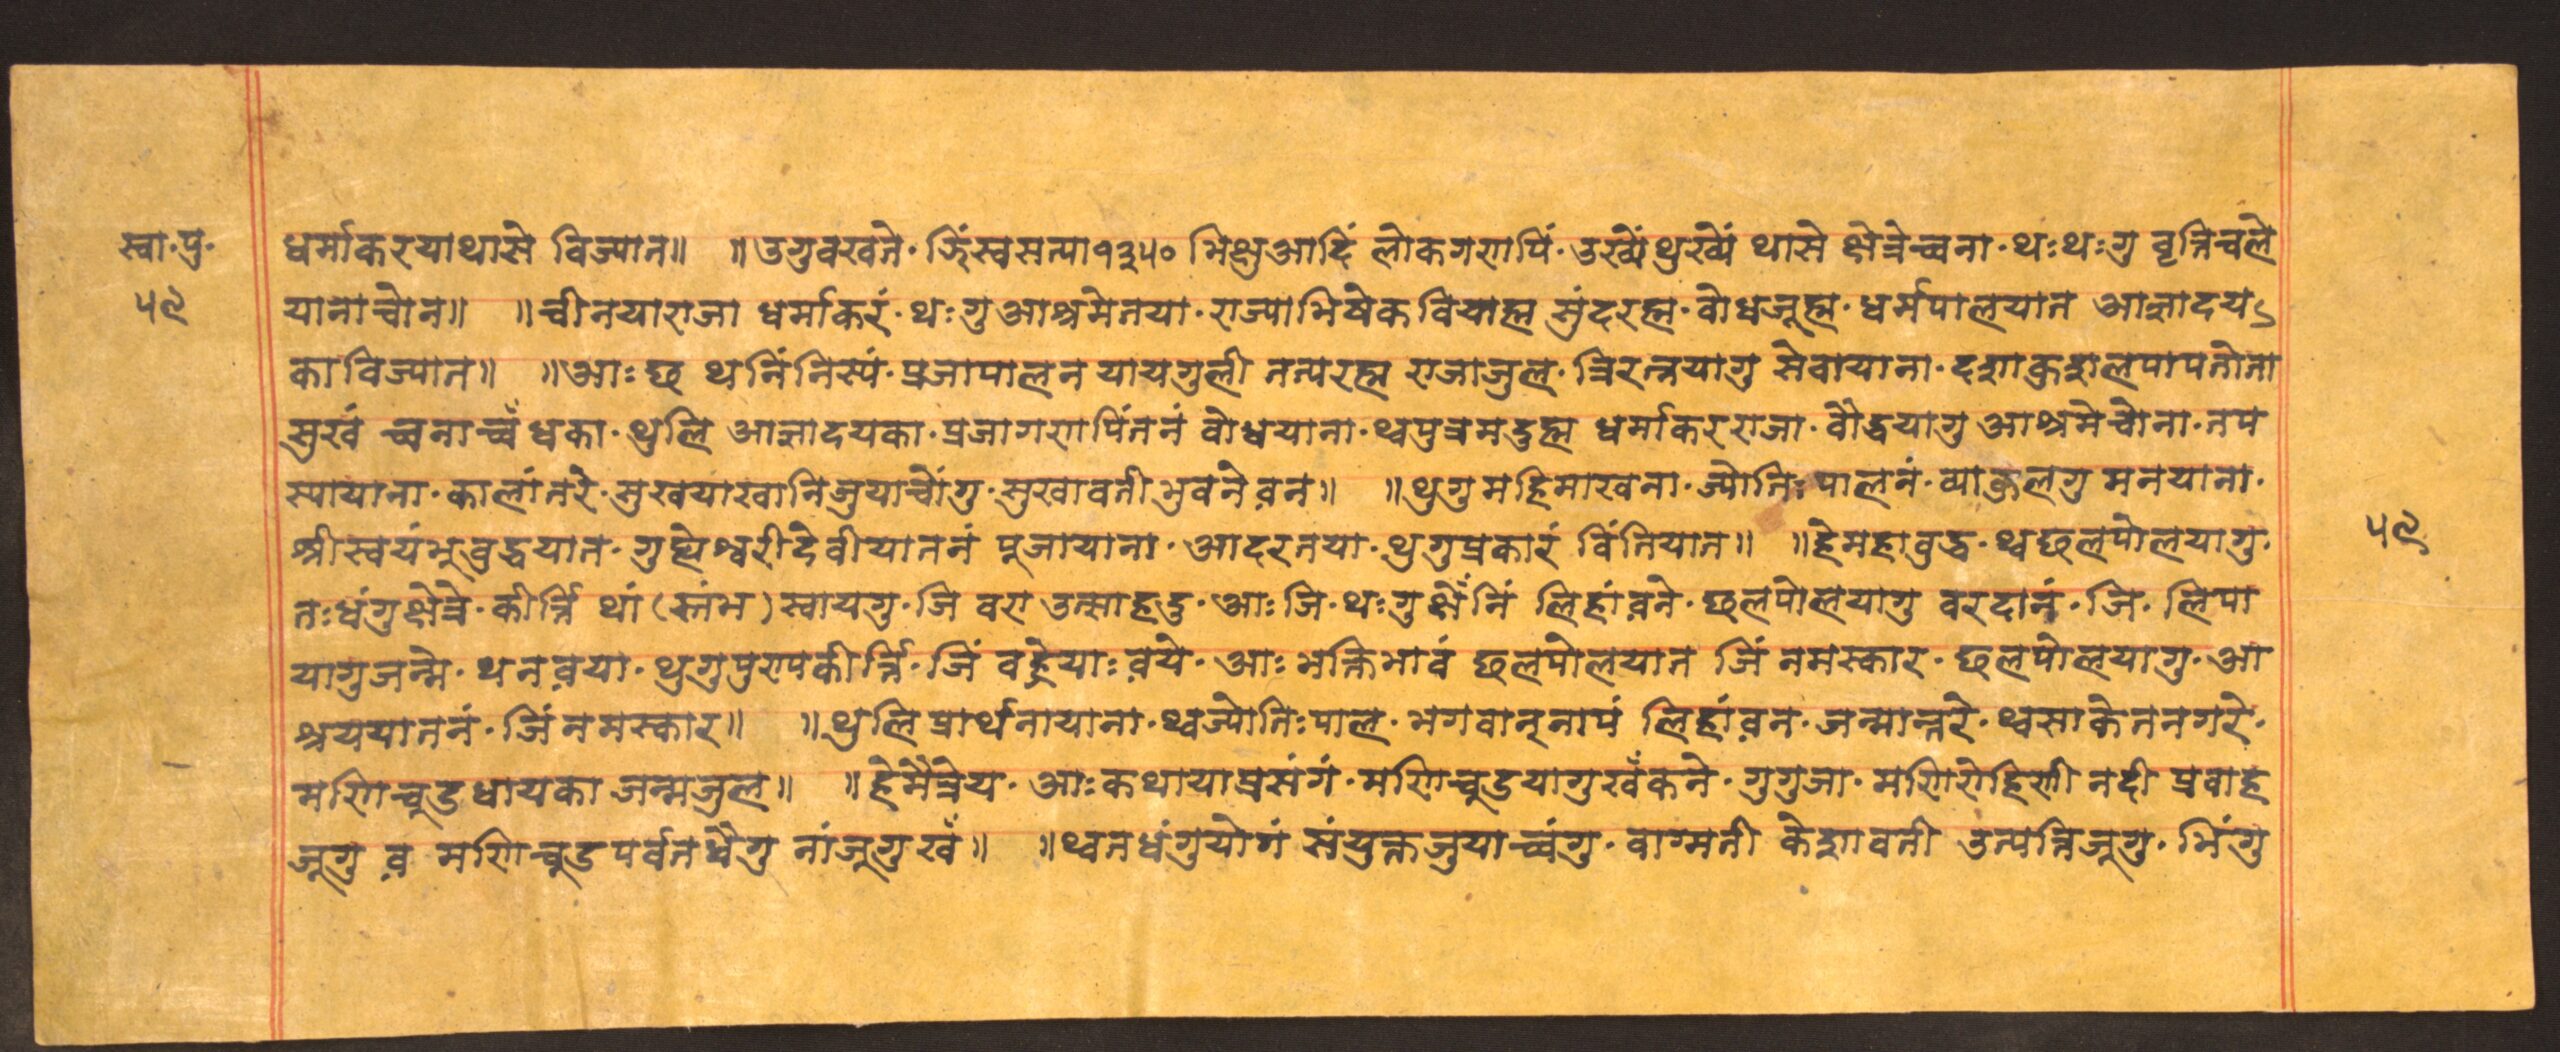 स्वा.पु.
५९
धर्माकरयाथासे विज्यात॥ ॥उगुवखते. झिंस्वसत्या१३५० भिक्षुआदिं लोकगणपिं. उखेें थुखेें थासे क्षेत्रेच्वना. थःथःगु वृत्तिचले
यानाचोन॥ ॥चीनयाराजा धर्माकरं. थःगुआश्रमेतया. राज्याभिषेक वियाह्म सुंदरह्म. वोधजूह्म. धर्मपालयात आज्ञादय
काविज्यात॥ ॥आः छ थनिंनिस्यं. प्रजापालन यायगुली तत्परह्म राजाजुल. त्रिरत्नयागु सेवायाना. दशाकुशलपापतोता
सुखं च्वनाच्वँ धका. थुलि आज्ञादयका. प्रजागणपिंतनं वोधयाना. थ्वपुत्रमदुह्म धर्माकरराजा. वौद्धयागु आश्रमेचोना. तप
स्यायाना. कालांतरे. सुखयाखानिजुयाचोंगु. सुखावतीभुवनेवन॥ ॥थुगुमहिमाखना. ज्योतिःपालनं. व्याकुलगु मनयाना.
श्रीस्वयंभूवुद्धयात. गुह्येश्वरीदेवीयातनं पूजायाना. आदरतया. थुगुप्रकारं विंतियात॥ ॥हेमहावुद्ध. थ्वछलपोलयागु.
तःधंगुक्षेत्रे. कीर्त्ति थां (स्तंभ) स्वायगु. जि वरा उत्साहदु. आः जि. थःगुक्षेँनिं लिहांवने. छलपोलयागु वरदानं. जि. लिपा
यागुजन्मे. थनवया. थुगुपुण्यकीर्त्ति. जिं वढेयाःवये. आः भक्तिभावं छलपोलयात जिं नमस्कार. छलपोलयागु. आ
श्रययातनं. जिं नमस्कार॥ ॥थुलि प्रार्थनायाना. थ्वज्योतिःपाल. भगवान्‌नापं लिहांवन. जन्मान्तरे. थ्वसाकेतनगरे.
मणिचूडधायका जन्मजुल॥ ॥हेमैत्रेय. आःकथायाप्रसंगं. मणिचूडयागुखँकने. गुगुजा. मणिरोहिणी नदी प्रवाह
जूगु व मणिचूडपर्वतधैगु नांजूगुखँ॥ ॥थ्वतधंगुयोगं संयुक्तजुयाच्वंगु. वाग्मती केशावती उत्पत्तिजूगु. भिंगु
५९